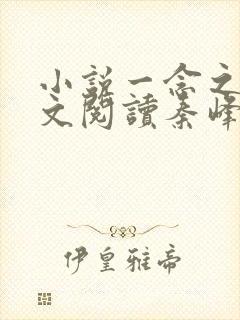 小説一念之
文閱讀秦峰
伊皇雅帝